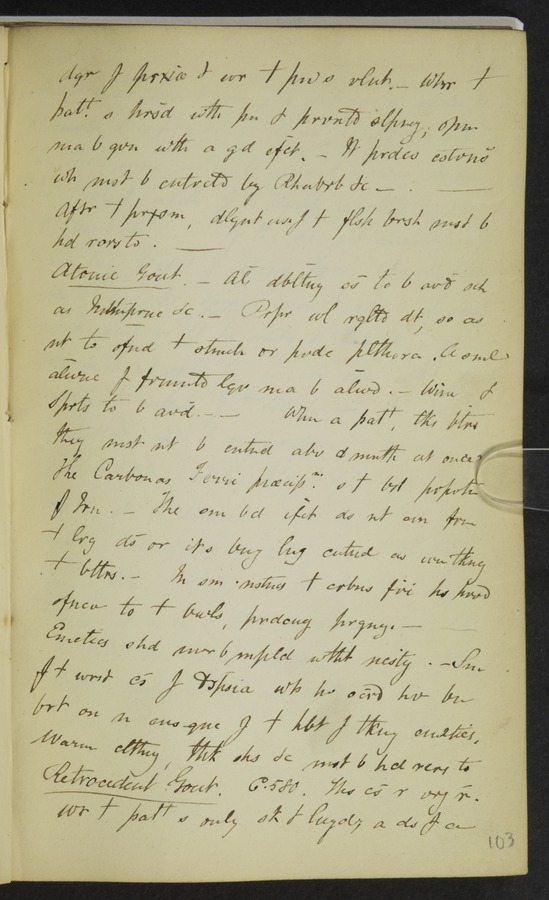 dgr f prxia & wr t pn s vlut. — Whr t
patt. s hrsd with pn & prvntd slpng, opm
ma b gvn wth a gd efct. — It prdcs cstvns
wh mst b cntrctd by Rhubrb &c —
Aftr t prxsm, dlgnt us f t flsh brsh mst b
hd rcrs to.
Atonic Gout. — Al dbltng cs to b avd sch
as &c. — Prpr wl rgltd dt, so as
nt to ofnd t stmch or prdc plthora. A sml
alwnc f frmntd lqr ma b alwd. — Win &
Sprts to b avd. — Whn a patt. tks btrs
they mst nt b cntnd abv a mnth at once
The Carbonas Ferri præcip. s t bst prprtn
f Irn. — The sm bd efct ds nt ars frm
t lrg ds or its bng lng cntnd as wn tkng
t bttrs. — In sm nstncs t crbns fri hs prvd
ofnsv to t bwls, prdcng prgng. —
Emetics shd nvr b mpld wtht ncsty. — Sm
f t wrst cs f Dspsia wh hv ocrd hv bn
brt on n cns qnc f t hbt f tkng emetics.
Warm clthng, thk shs &c mst b hd rcrs to
Retrocedent Gout. C. 580. Ths cs r vry r.
wr t patt s only sk & lngdg a ds f a
103